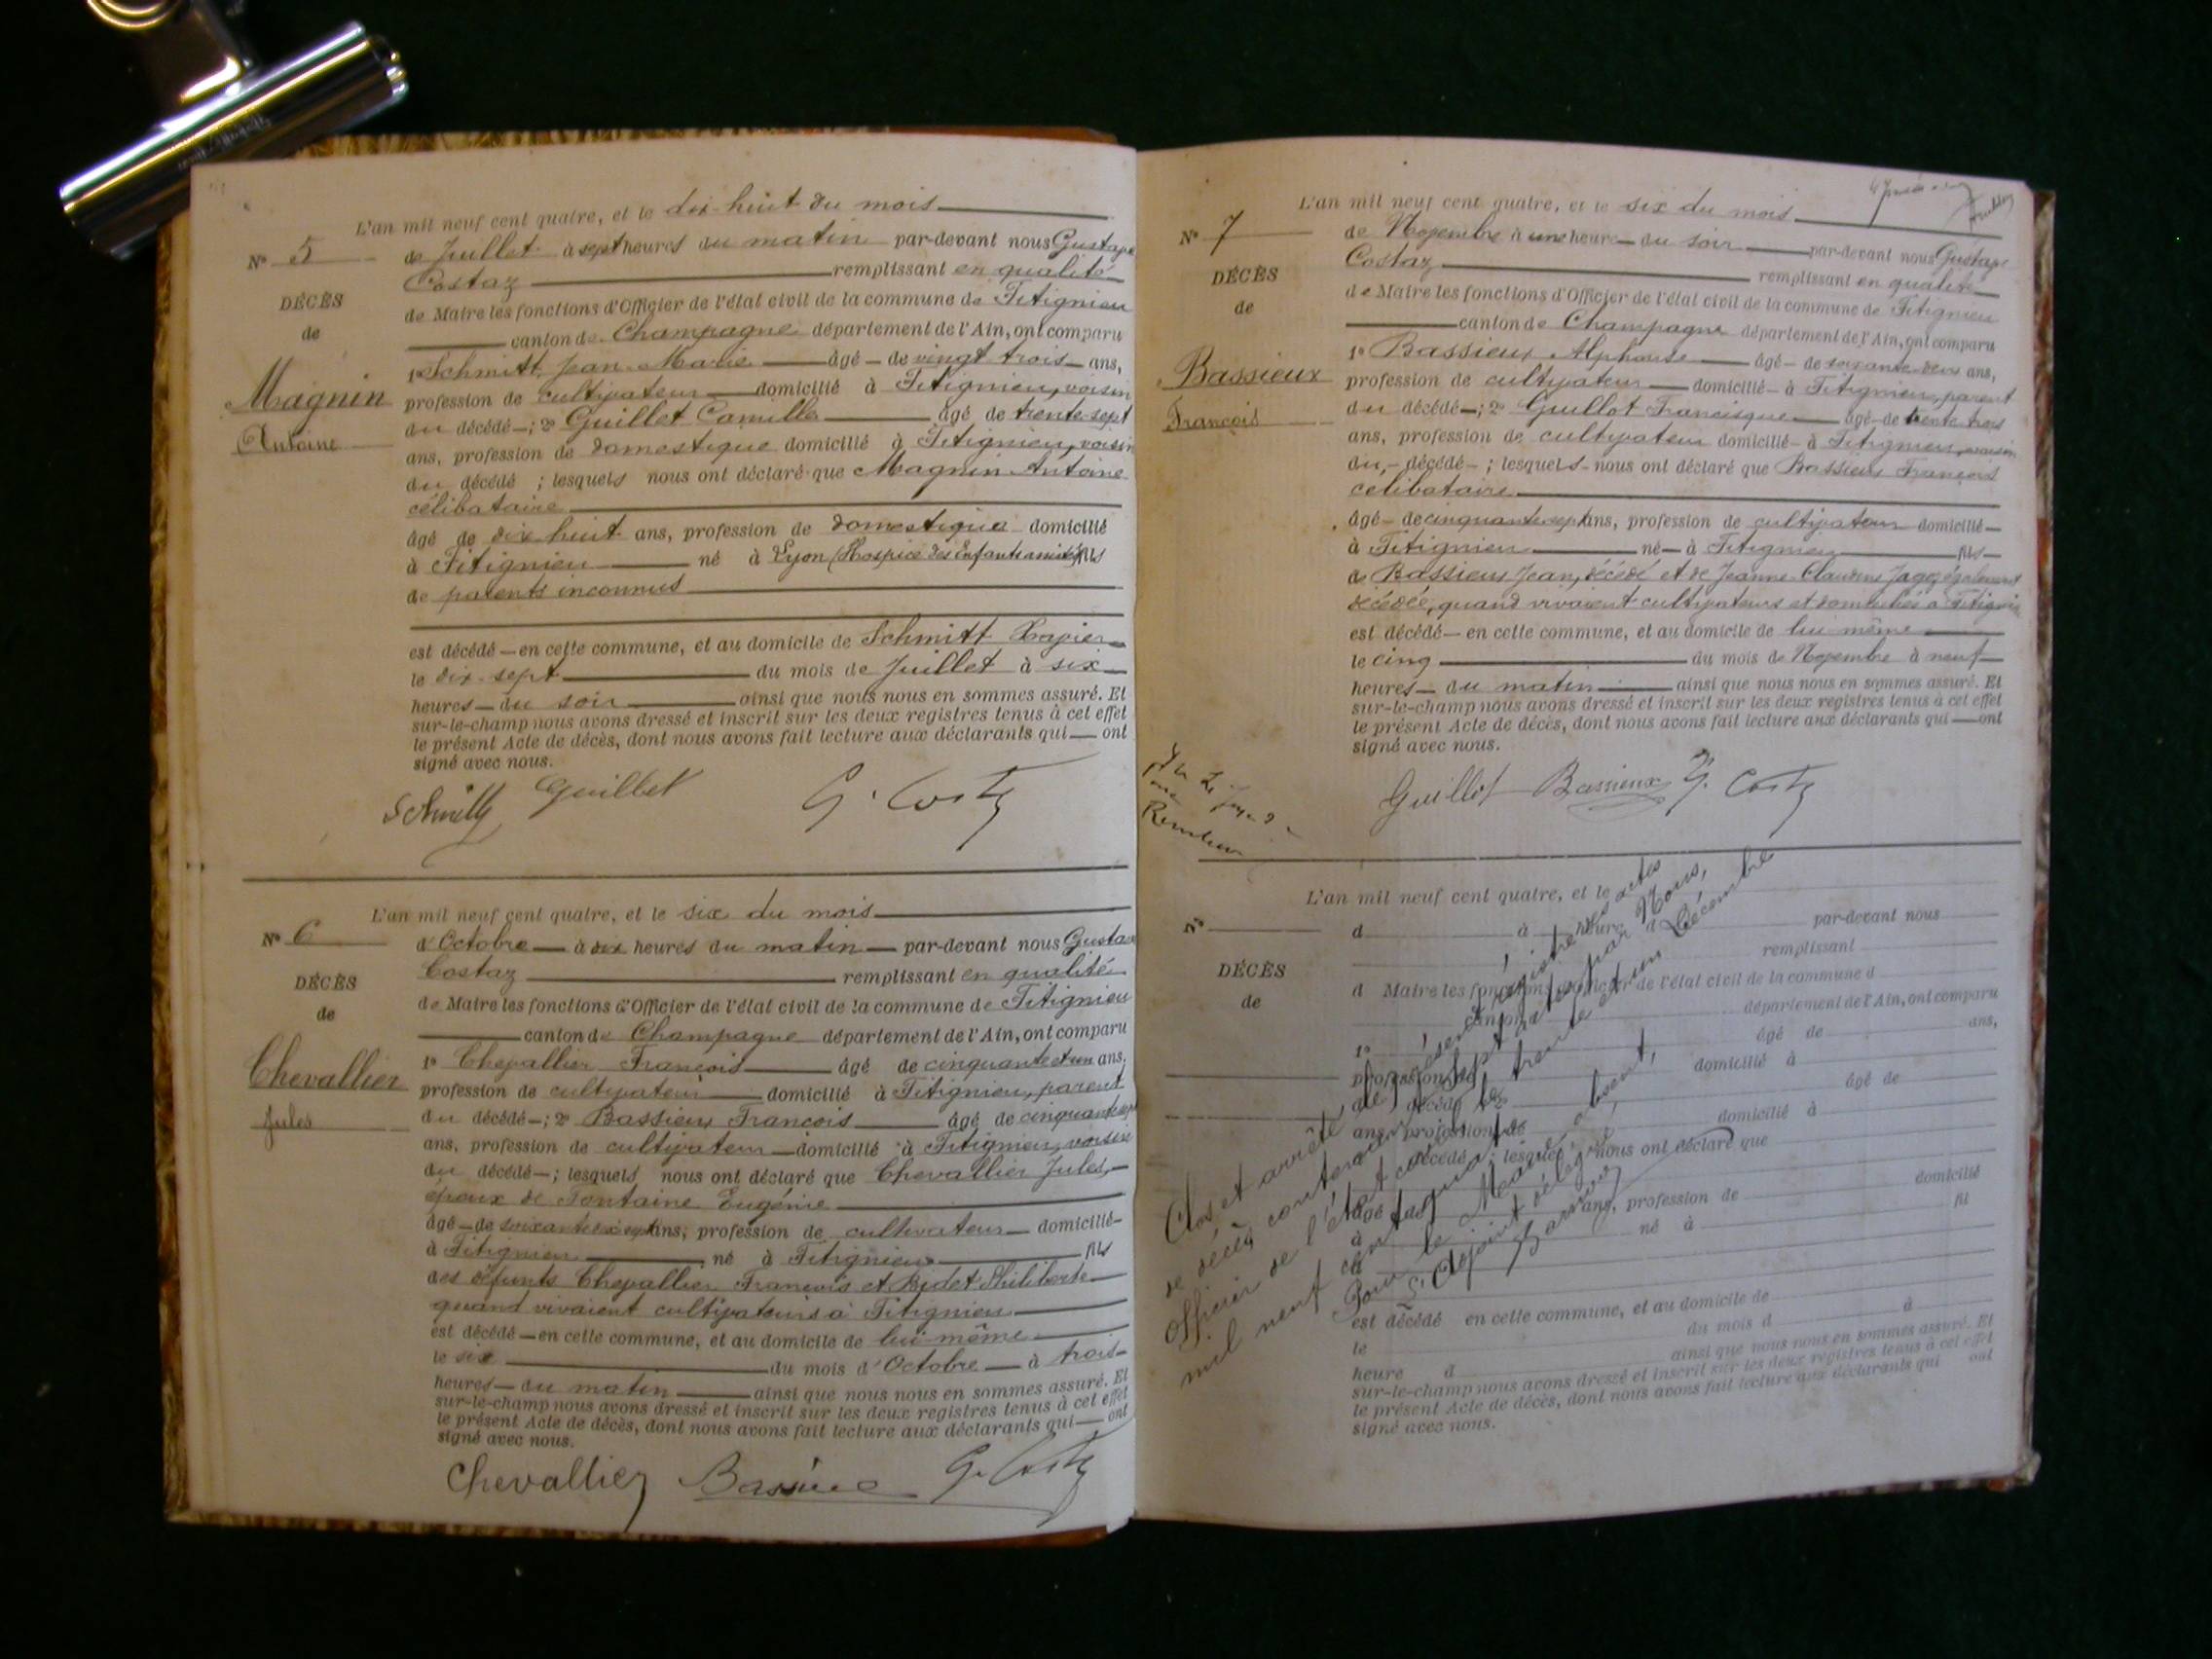 L'an mil neuf cent quatre, et le dix huit du mois
N° 5
de Juillet à sept heures du matin par-devant nous Gustave
Costaz remplissant en qualité
DÉCÈS
de Maire les fonctions d'Officier de l'état civil de la commune de Fitignieu
de
canton de Champagne département de l'Ain, ont comparu
1° Schmitt Jean Marie âgé de vingt trois ans,
Magnin
profession de cultivateur domicilié à Fitignieu, voisin
du décédé ; 2° Guillet Camille âgé de trente-sept
Antoine
ans, profession de domestique domicilié à Fitignieu, voisin
du décédé ; lesquels nous ont déclaré que Magnin Antoine
célibataire
âgé de dix huit ans, profession de domestique domicilié
à Fitignieu né à Lyon (Hospice des Enfants assistés) fils
de parents inconnus
est décédé en cette commune, et au domicile de Schmitt Xavier
le dix-sept du mois de Juillet à six
heures du soir ainsi que nous nous en sommes assuré. Et
sur-le-champ nous avons dressé et inscrit sur les deux registres tenus à cet effet
le présent Acte de décès, dont nous avons fait lecture aux déclarants qui ont
signé avec nous.
Schmitt Guillet G. Costaz
L'an mil neuf cent quatre, et le six du mois
N° 6
d'Octobre à dix heures du matin par-devant nous Gustave
Costaz remplissant en qualité
DÉCÈS
de Maire les fonctions d'Officier de l'état civil de la commune de Fitignieu
de
canton de Champagne département de l'Ain, ont comparu
1° Chevallier François âgé de cinquante et un ans,
Chevallier
profession de cultivateur domicilié à Fitignieu, parent
Jules
du décédé ; 2° Bassieux François âgé de cinquante sept
ans, profession de cultivateur domicilié à Fitignieu, voisin
du décédé ; lesquels nous ont déclaré que Chevallier Jules,
époux de Fontaine Eugénie
âgé de ans, profession de cultivateur domicilié
à Fitignieu né à Fitignieu fils
des défunts Chevallier François et Bidet Philiberte
quand vivaient cultivateurs à Fitignieu
est décédé en cette commune, et au domicile de lui même
le six du mois d'Octobre à trois
heures du matin ainsi que nous nous en sommes assuré. Et
sur-le-champ nous avons dressé et inscrit sur les deux registres tenus à cet effet
le présent Acte de décès, dont nous avons fait lecture aux déclarants qui ont
signé avec nous.
Chevallier Bassieux G. Costaz
L'an mil neuf cent quatre, et le six du mois
N° 7
de Novembre à une heure du soir par-devant nous Gustave
Costaz remplissant en qualité
DÉCÈS
de Maire les fonctions d'Officier de l'état civil de la commune de Fitignieu
de
canton de Champagne département de l'Ain, ont comparu
1° Bassieux Alphonse âgé de soixante deux ans,
Bassieux
profession de cultivateur domicilié à Fitignieu, parent
du décédé ; 2° Guillot Francisque âgé de trente trois
François
ans, profession de cultivateur domicilié à Fitignieu, voisin
du décédé ; lesquels nous ont déclaré que Bassieux François
célibataire
âgé de cinquante sept ans, profession de cultivateur domicilié
à Fitignieu né à Fitignieu fils
de Bassieux Jean, décédé et de Jeanne Claudine également
décédée, quand vivaient cultivateurs et domiciliés à Fitignieu
est décédé en cette commune, et au domicile de lui même
le cinq du mois de Novembre à neuf
heures du matin ainsi que nous nous en sommes assuré. Et
sur-le-champ nous avons dressé et inscrit sur les deux registres tenus à cet effet
le présent Acte de décès, dont nous avons fait lecture aux déclarants qui ont
signé avec nous.
Guillot Bassieux G. Costaz
L'an mil neuf cent quatre, et le
N°
d à heure d par-devant nous
remplissant
DÉCÈS
d Maire les fonctions d'Officier de l'état civil de la commune d
de
canton d département de l'Ain, ont comparu
1° âgé de ans,
profession de domicilié à
d décédé ; 2° âgé de
ans, profession de domicilié à
d décédé ; lesquels nous ont déclaré que
âgé de ans, profession de domicilié
à né à fil
d
est décédé en cette commune, et au domicile de
le du mois d à
heure d ainsi que nous nous en sommes assuré. Et
sur-le-champ nous avons dressé et inscrit sur les deux registres tenus à cet effet
le présent Acte de décès, dont nous avons fait lecture aux déclarants qui ont
signé avec nous.
Clos et arrêté, le présent registre des actes
de décès contenant sept actes, par Nous,
Officier de l'état civil, le trente et un Décembre
mil neuf cent quatre
Pour le Maire absent,
L'Adjoint délégué,